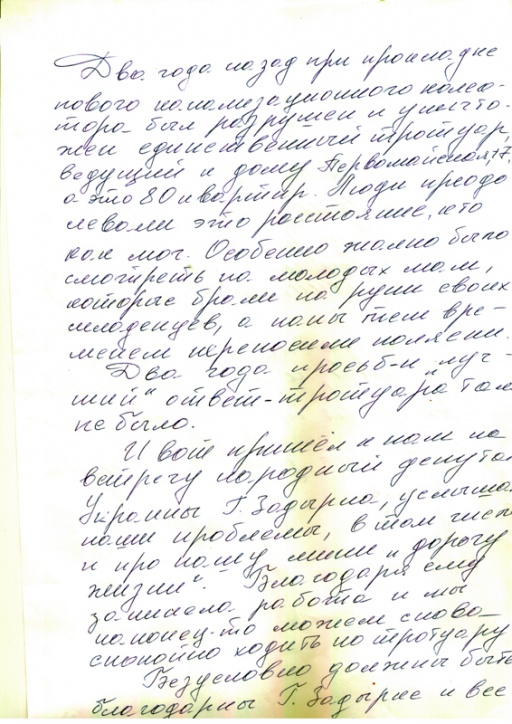 Два года назад при прокладке
нового канализационного колек-
тора был разрушен и уничто-
жен единственный тротуар,
ведущий к дому Первомайская, 17,
а это 80 квартир. Люди преодо
левали это расстояние, кто
как мог. Особенно жалко было
смотреть на молодых мам,
которые брали на руки своих
младенцев, а папы тем вре-
менем переносили коляски.
Два года просьб-и "луч-
ший" ответ-тротуара там
не было.
И вот пришёл к нам на
встречу народный депутат
Украины Г. Задырко, услышал
наши проблемы, в том числе
и про нашу мини "дорогу
жизни". Благодаря ему
закипела работа и мы
наконец-то можем снова
спокойно ходить по тротуару
Безусловно должны быть
благодарны Г. Задырке и все